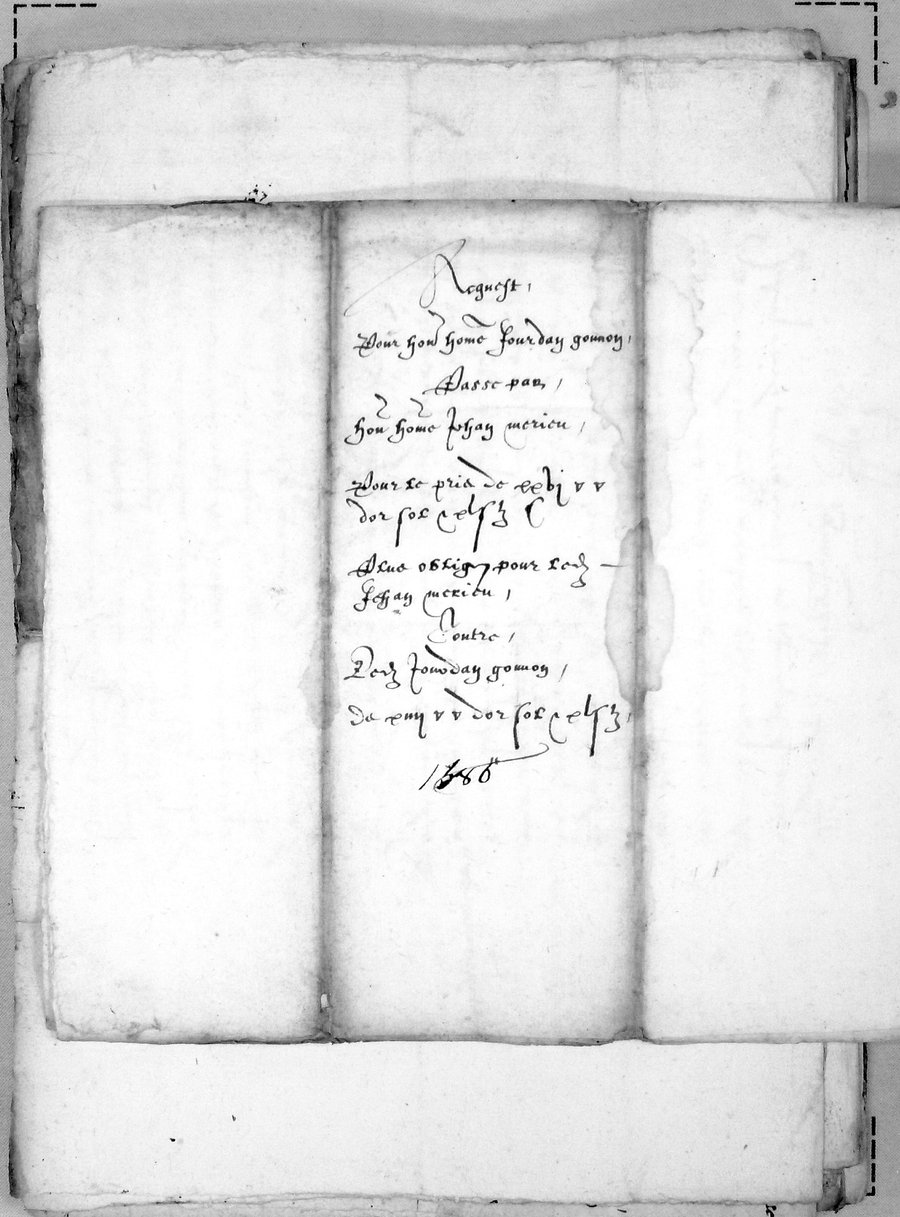 Acquest,
Pour hon home Jourdan gounon,
Passe par,
hon home Jehan merieu,
Pour le pris de xxvj v v
dor sol xl sz
Plus oblig pour ledz
Jehan merieu,
Contre,
Ledz Jourdan gounon,
de xiiij v v dor sol xl sz,
1586